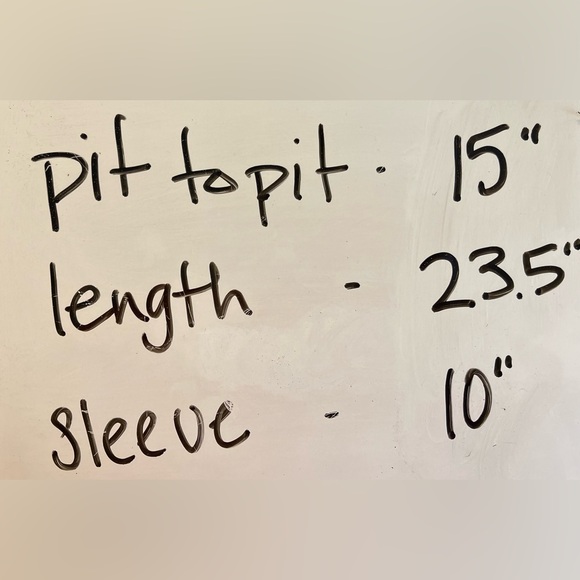 pit to pit - 15"
length - 23.5"
sleeve - 10"